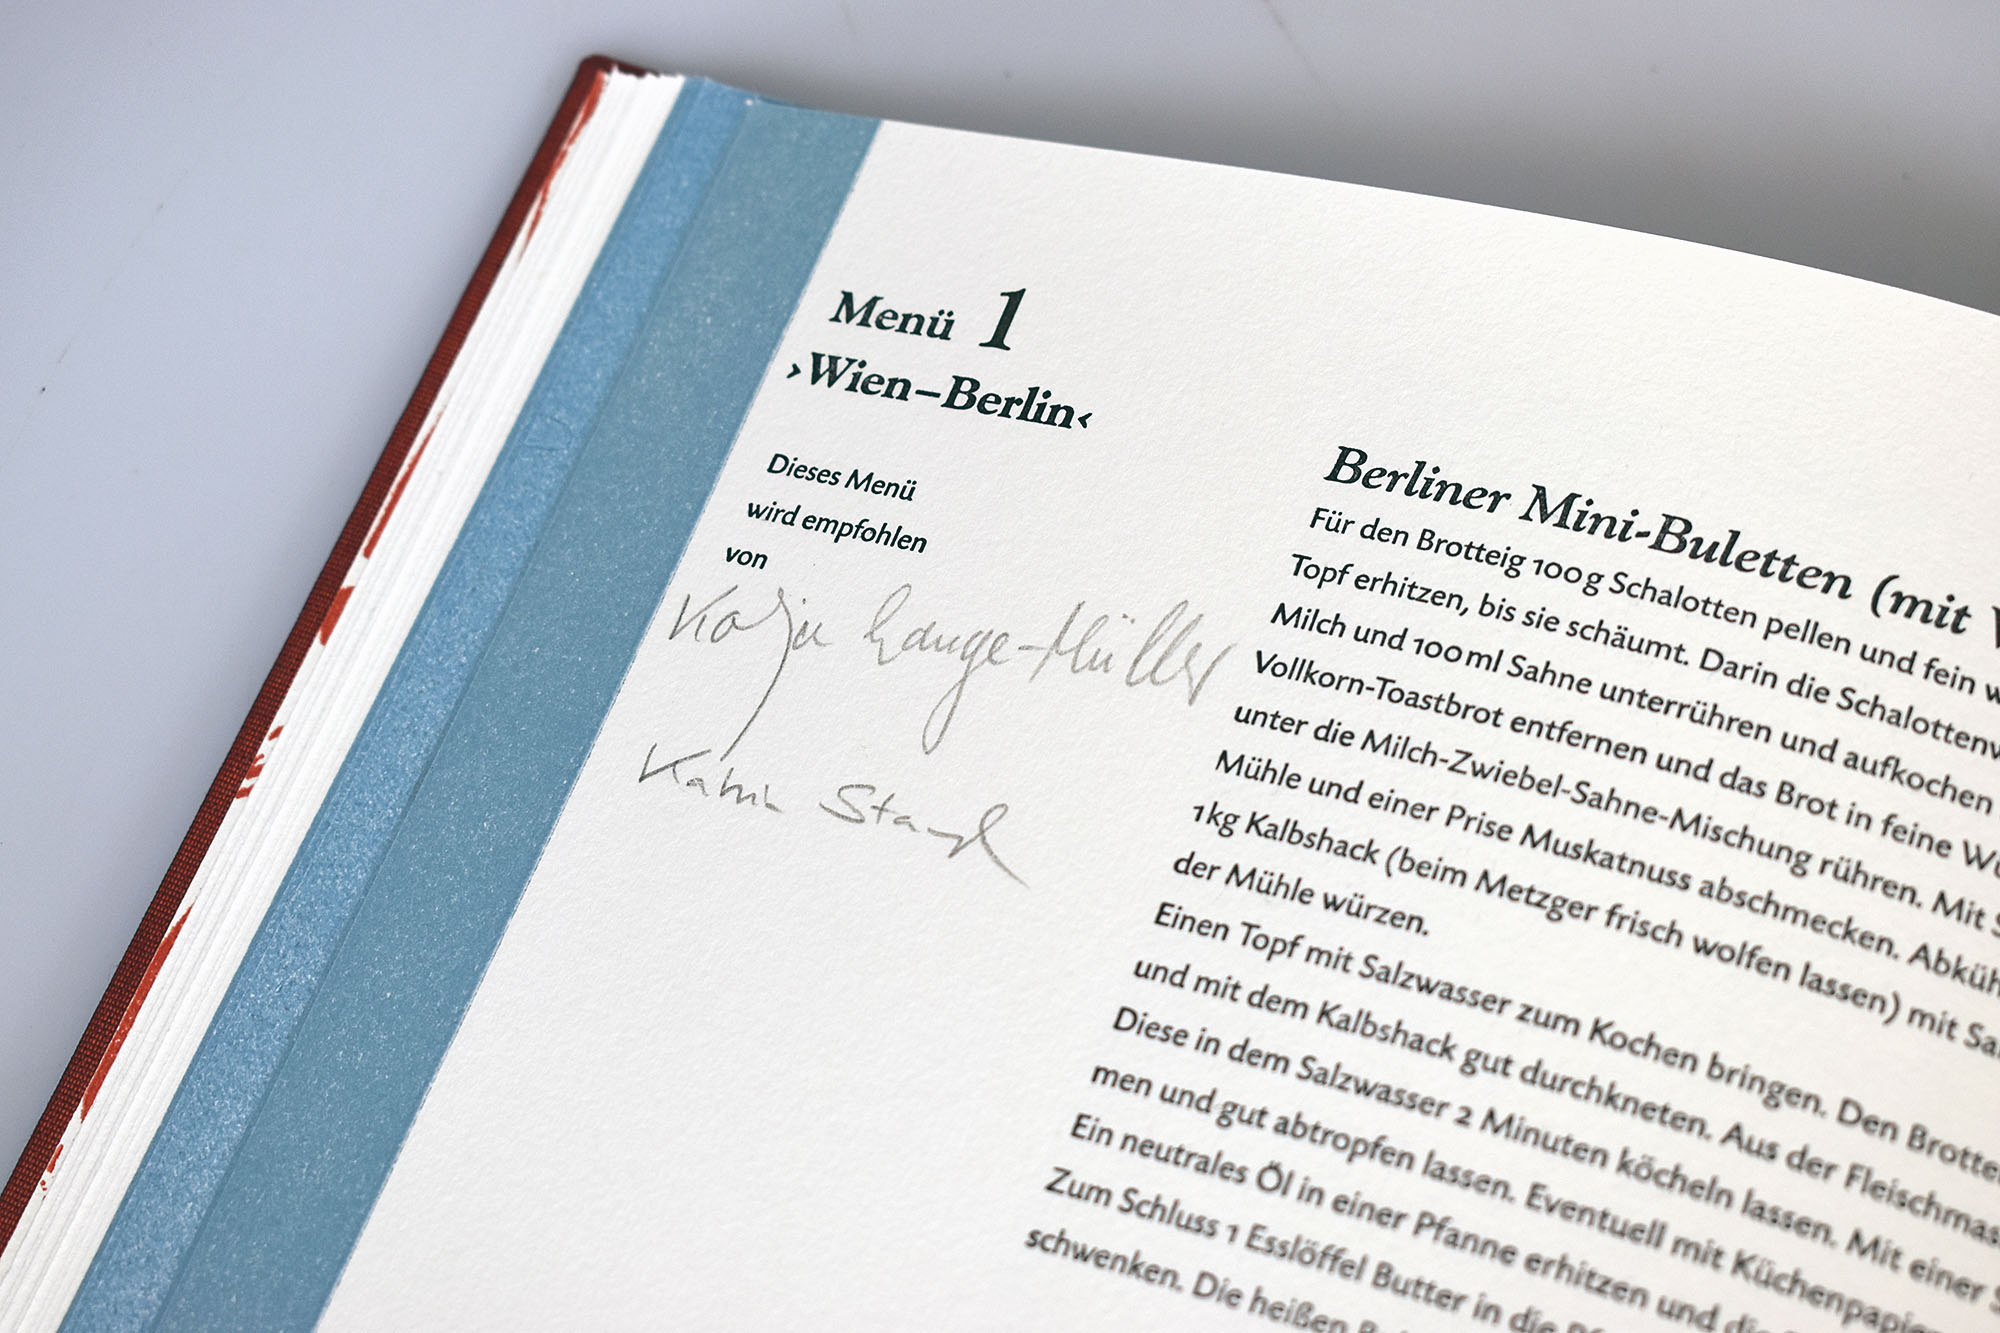 Menü 1
›Wien–Berlin‹
Dieses Menü
wird empfohlen
von
Katja Lange-Müller
Katrin
Berliner Mini-Buletten (mit
Für den Brotteig 100 g Schalotten pellen und fein
Topf erhitzen, bis sie schäumt. Darin die
Milch und 100 ml Sahne unterrühren und aufkochen
Vollkorn-Toastbrot entfernen und das Brot in feine
unter die Milch-Zwiebel-Sahne-Mischung rühren. Mit
Mühle und einer Prise Muskatnuss abschmecken.
1 kg Kalbshack (beim Metzger frisch wolfen lassen) mit
der Mühle würzen.
Einen Topf mit Salzwasser zum Kochen bringen. Den
und mit dem Kalbshack gut durchkneten. Aus der
Diese in dem Salzwasser 2 Minuten köcheln lassen. Mit einer
men und gut abtropfen lassen. Eventuell mit
Ein neutrales Öl in einer Pfanne erhitzen und
Zum Schluss 1 Esslöffel Butter in die
schwenken. Die heißen